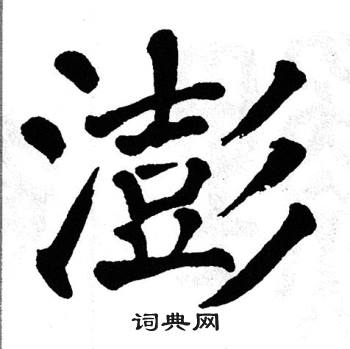 澎
词典网